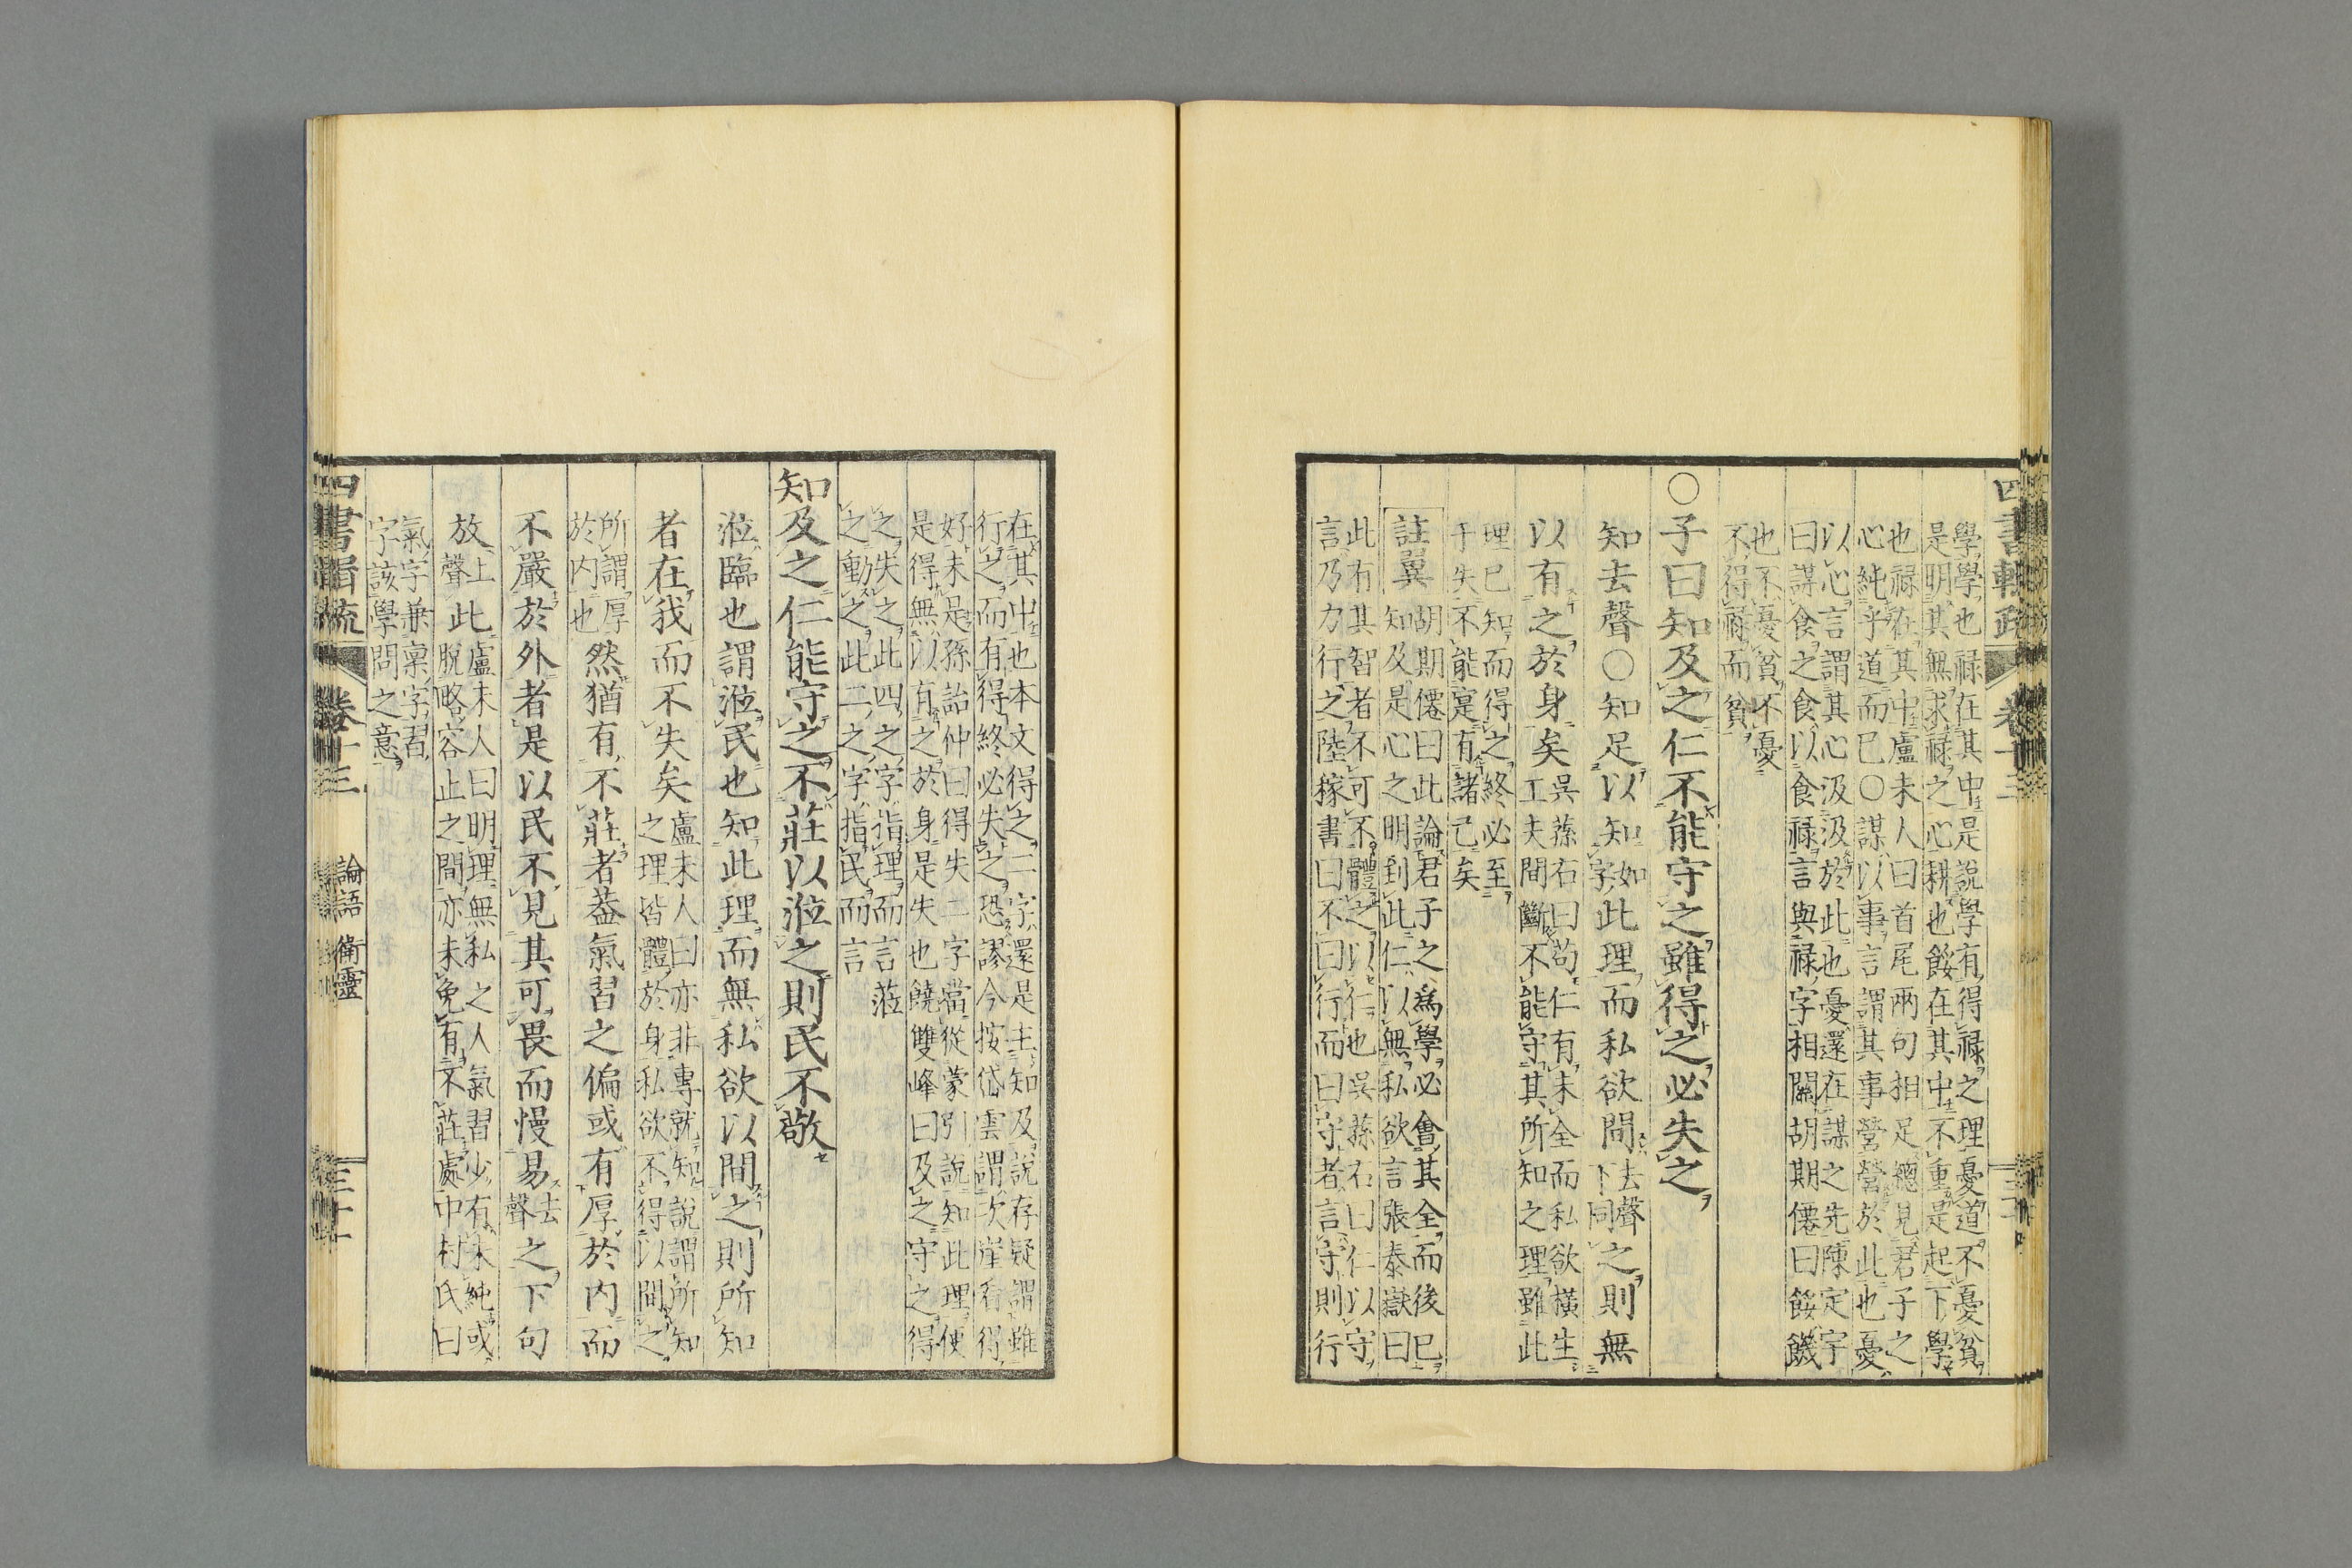 學學也祿在其中是說學有得祿之理憂道不憂貧
是明其無求祿之心耕也餒在其中不重是起下學
也祿在其中盧未人曰首尾兩句相足總見君子之
心純乎道而已○謀以事言謂其事營營於此也憂
以心言謂其心汲汲於此也憂還在謀之先陳定宇
曰謀食之食以食祿言與祿字相關胡期僊曰餒饑
也不憂貧不憂
不得祿而貧
○子曰知及之仁不能守之雖得之必失之
知去聲○知足以知如字此理而私欲間去聲下同之則無
以有之於身矣吳蓀右曰苟仁有未全而私欲橫生工夫間斷不能守其所知之理雖此
理已知而得之終必至
于失不能寔有諸己矣
註翼胡期僊曰此論君子之為學必會其全而後已
知及是心之明到此仁以無私欲言張泰嶽曰
此有其智者不可不體之以仁也吳蓀右曰仁以守
言乃力行之陸稼書曰不曰行而曰守者言守則行
在其中也本文得之二字還是主知及說存疑謂雖
行之而有得終必失之恐謬今按岱雲謂次崖看得
好未是孫詒仲曰得失二字當從蒙引說知此理便
是得無以有之於身是失也饒雙峰曰及之守之得
之失之此四之字指理而言蒞
之動之此二之字指民而言
知及之仁能守之不莊以涖之則民不敬
涖臨也謂涖民也知此理而無私欲以間之則所知
者在我而不失矣盧未人曰亦非專就知說謂所知之理皆體於身私欲不得以間之
所謂厚於內也然猶有不莊者葢氣習之偏或有厚於內而
不嚴於外者是以民不見其可畏而慢易去聲之下句
放上聲此盧未人曰明理無私之人氣習少有未純或脫略容止之間亦未免有不莊處中村氏曰
氣字兼稟字習
字該學問之意
四書輯疏 卷十三 論語 衛靈